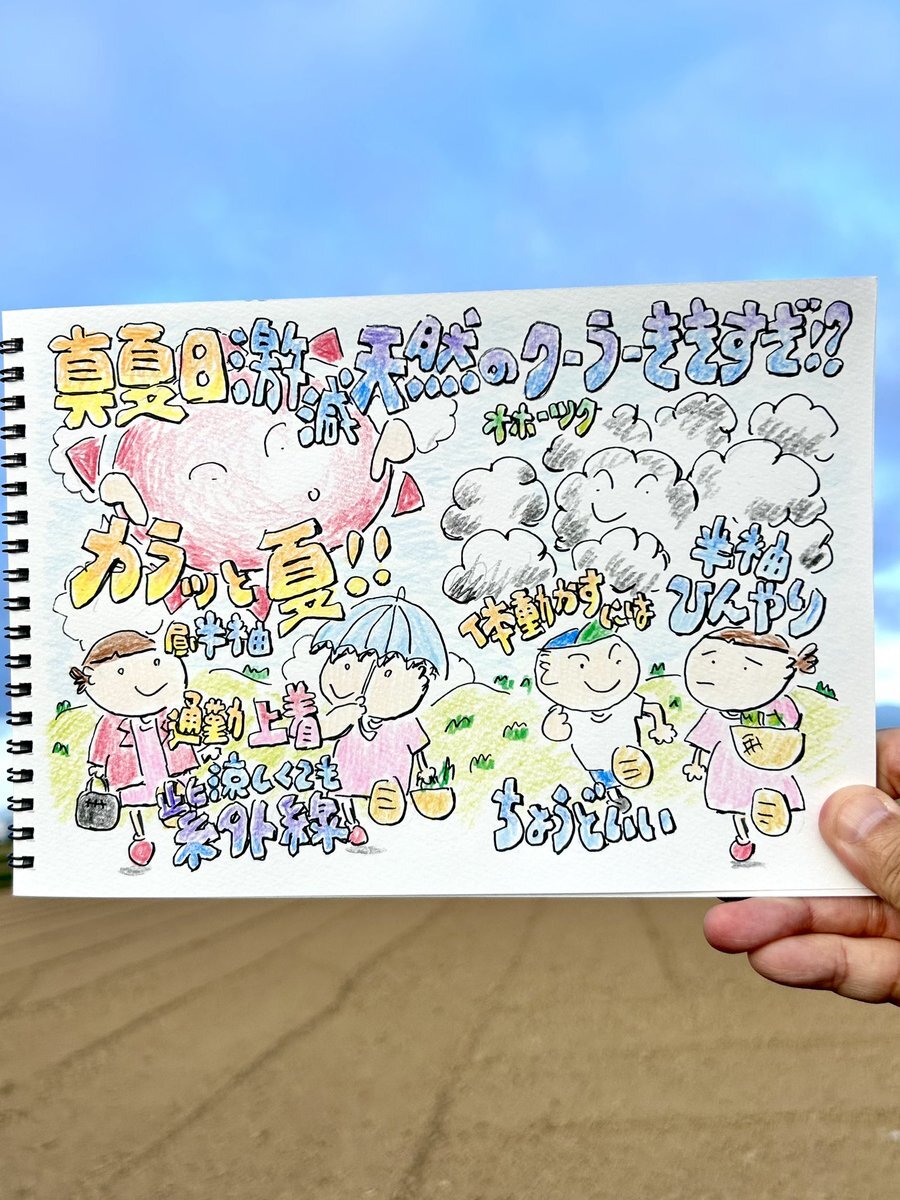 真夏日激減天然のクーラーききすぎ!?
オホーツク
カラッと夏!!
半袖
ひんやり
体動かすには
昼半袖
通勤上着
涼しくても
紫外線
ちょうどいい